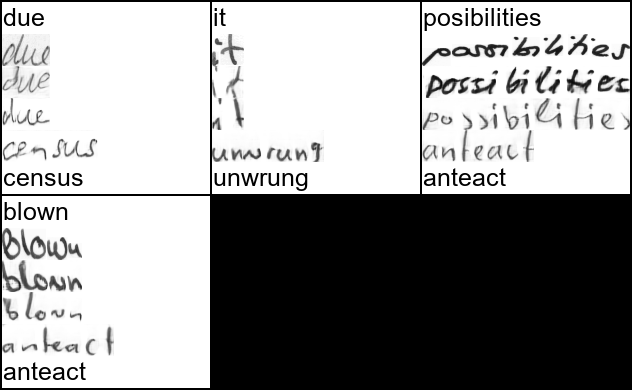 due
due
due
due
census
census
it
it
it
it
unwrung
unwrung
posibilities
possibilities
possibilities
possibilities
anteact
anteact
blown
blown
blown
blown
anteact
anteact